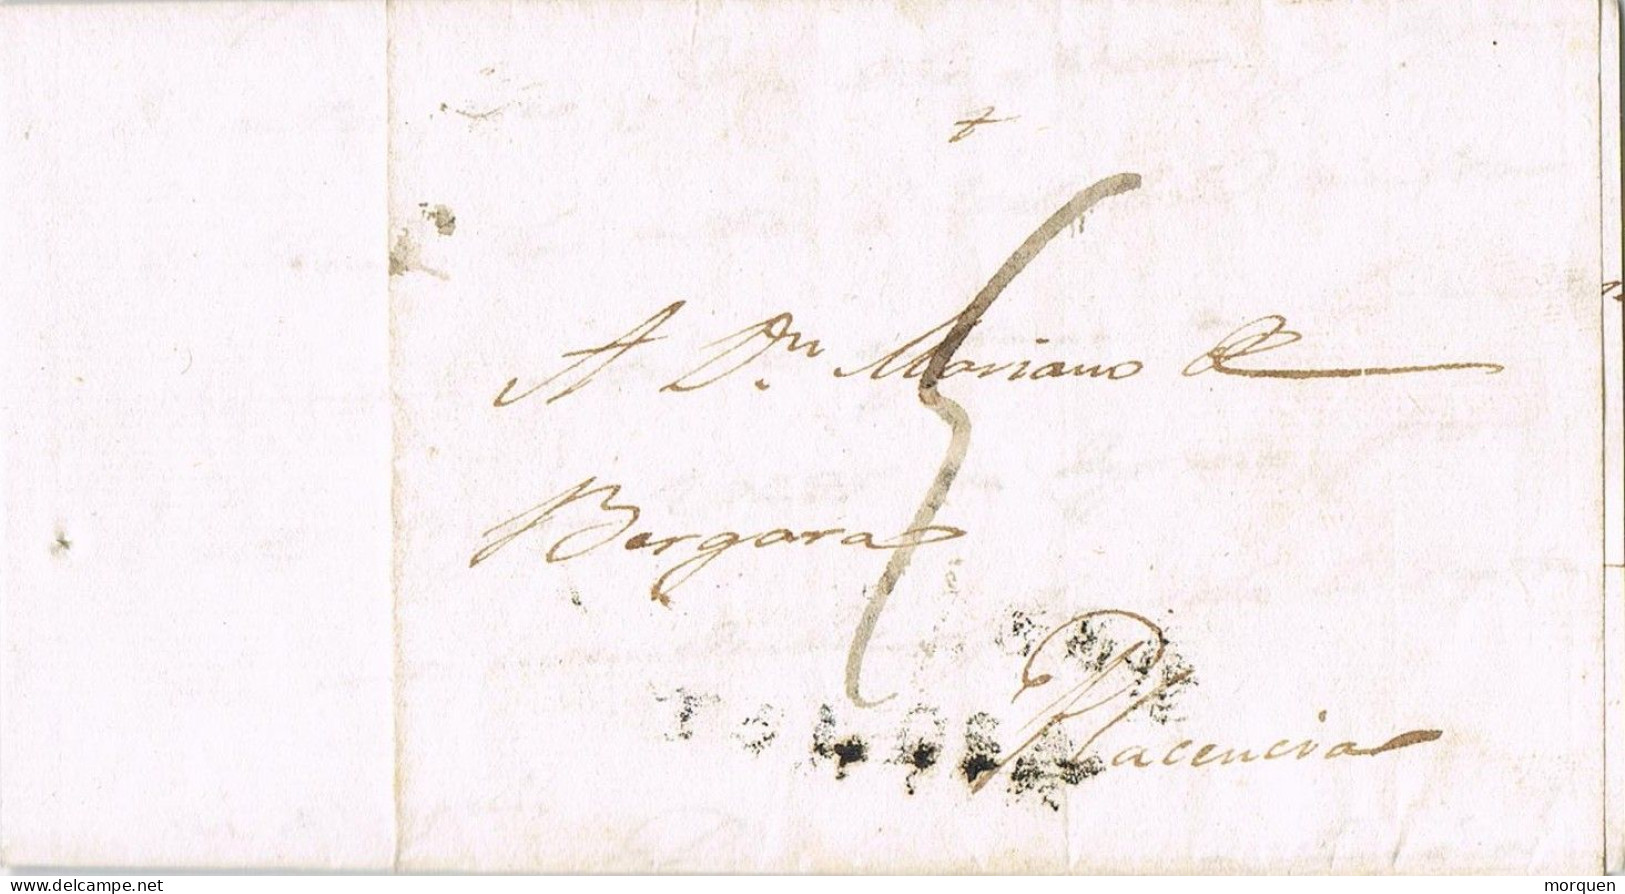 A Dn. Mariano de
Bergara
Placencia
TOLOSA
delcampe.net
morquen